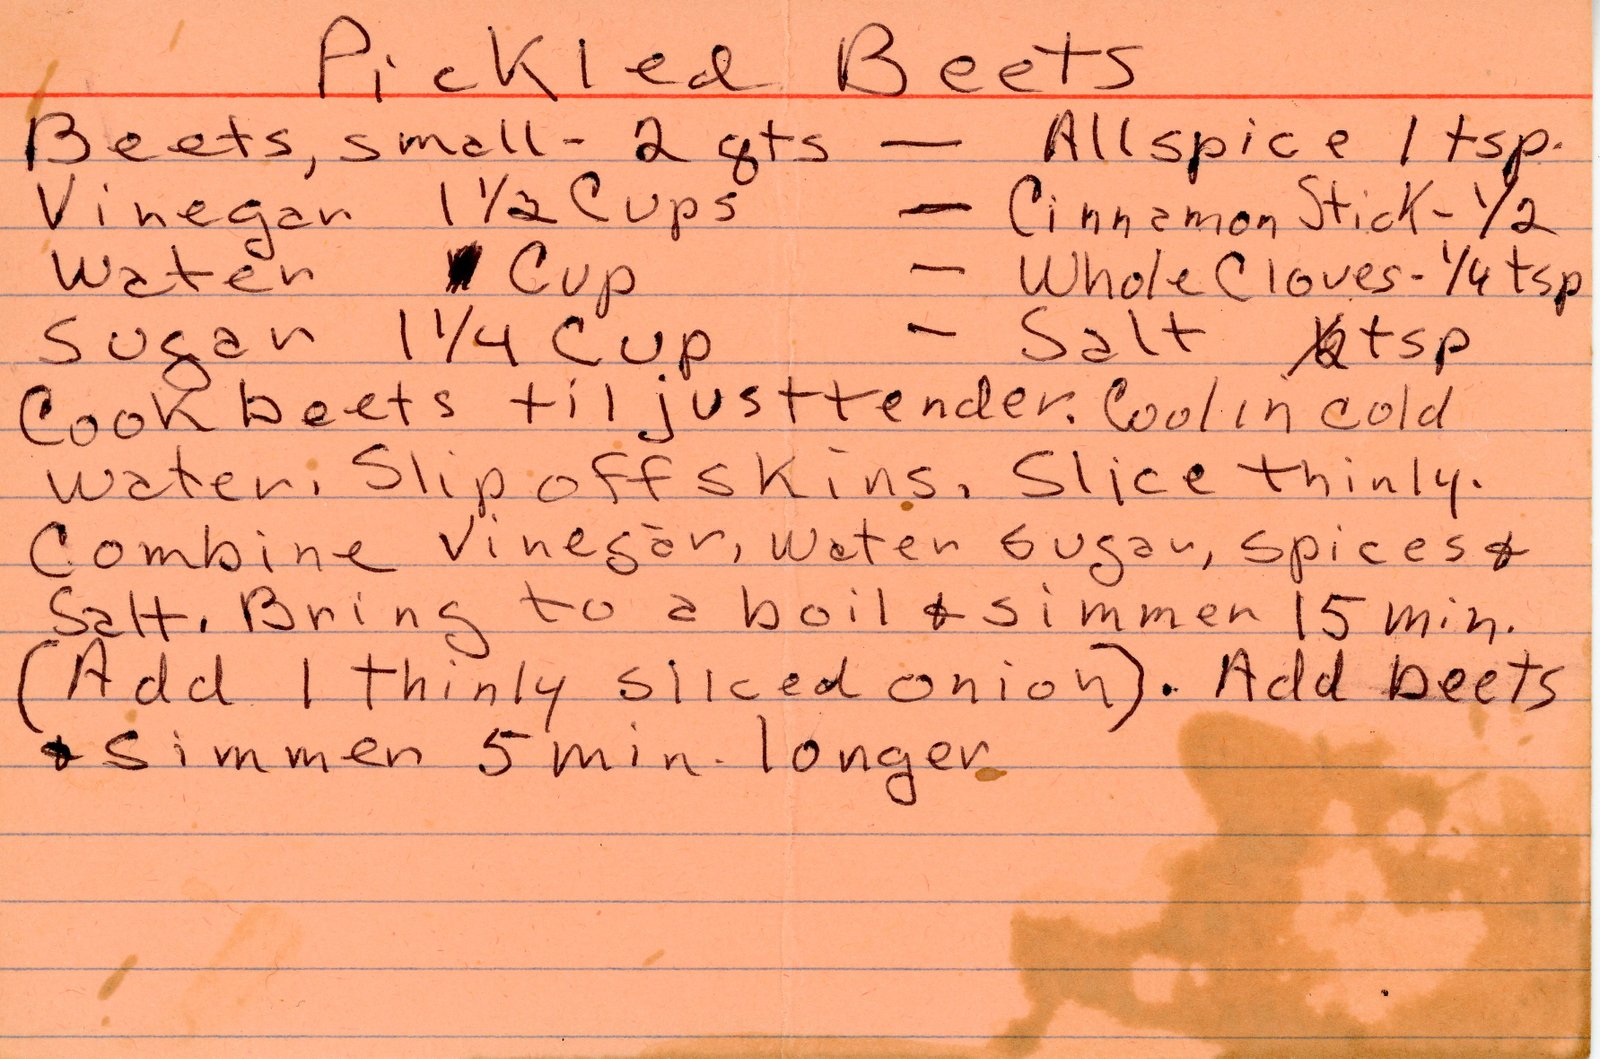 Pickled Beets
Beets, small - 2 qts — Allspice 1 tsp.
Vinegar 1 1/2 Cups — Cinnamon Stick - 1/2
Water Cup — Whole Cloves - 1/4 tsp
Sugar 1 1/4 Cup - Salt tsp
Cook beets til just tender. Cool in cold
water. Slip off skins. Slice thinly.
Combine vinegar, water sugar, spices &
Salt. Bring to a boil & simmer 15 min.
(Add 1 thinly sliced onion). Add beets
& simmer 5 min. longer